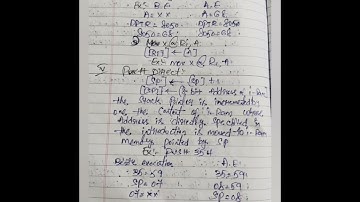 Ex:- B.E A.E
A = XX A = 68
DPTR = 8050 DPTR = 8050
8050 = 68 8050 = 68
MOVX @Ri, A
[[Ri]] ← [A]
Ex:- MOVX @R1, A
Push Direct:-
[SP] ← [SP] + 1
[[SP]] ← [8 bit Address of i-Ram]
the Stack Pointer is incremented by
one the content of i-Ram whose
Address is directly specified in
the instruction is moved to i-Ram
memory pointed by SP
Ex:- Push 35H
Before execution A.E
35 = 59 35 = 59
SP = 07 08 = 59
07 = XX SP = 08